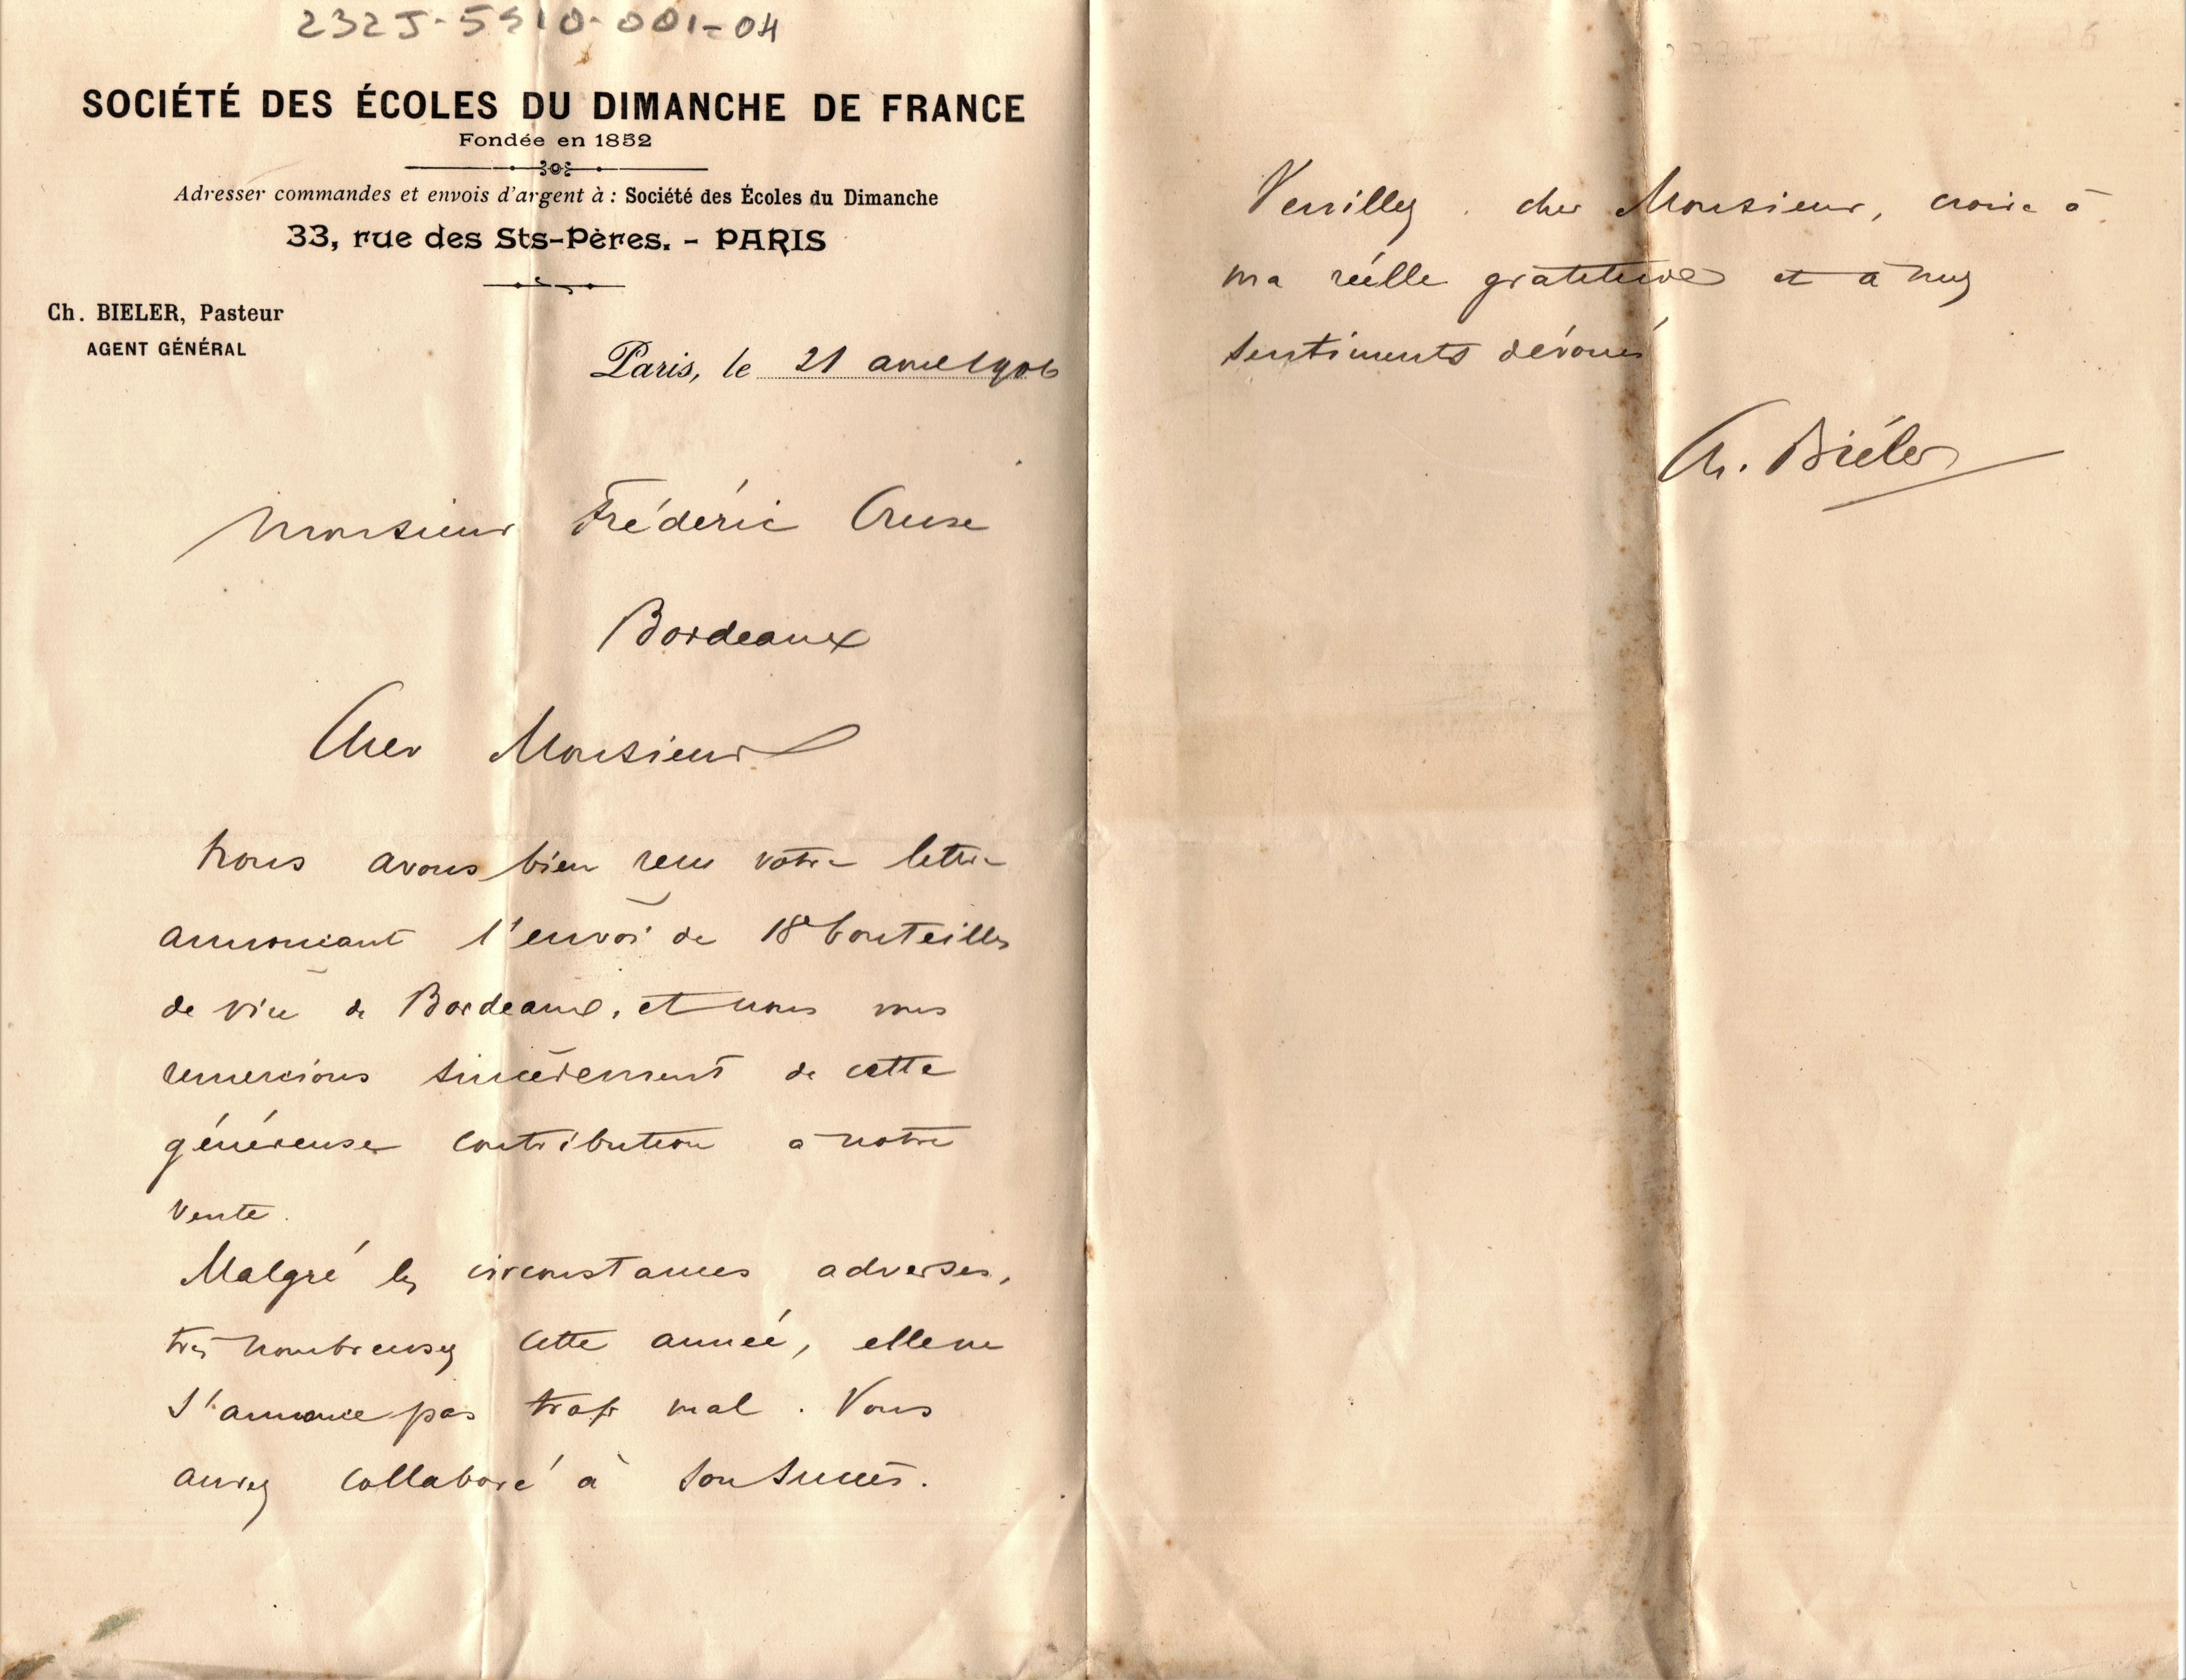 232J-5510-001-04
SOCIÉTÉ DES ÉCOLES DU DIMANCHE DE FRANCE
Fondée en 1852
Adresser commandes et envois d'argent à : Société des Écoles du Dimanche
33, rue des Sts-Pères. - PARIS
Ch. BIELER, Pasteur
AGENT GÉNÉRAL
Paris, le 21 avril 1906
Monsieur Frédéric Cruse
Bordeaux
Cher Monsieur
Nous avons bien reçu votre lettre
annonçant l'envoi de 18 bouteilles
de vin de Bordeaux, et nous vous
remercions sincèrement de cette
généreuse contribution à notre
vente.
Malgré les circonstances adverses,
très nombreuses cette année, elle ne
s'annonce pas trop mal. Vous
aurez collaboré à son succès.
Veuillez, cher Monsieur, croire à
ma réelle gratitude et à mes
sentiments dévoués
Ch. Biéler